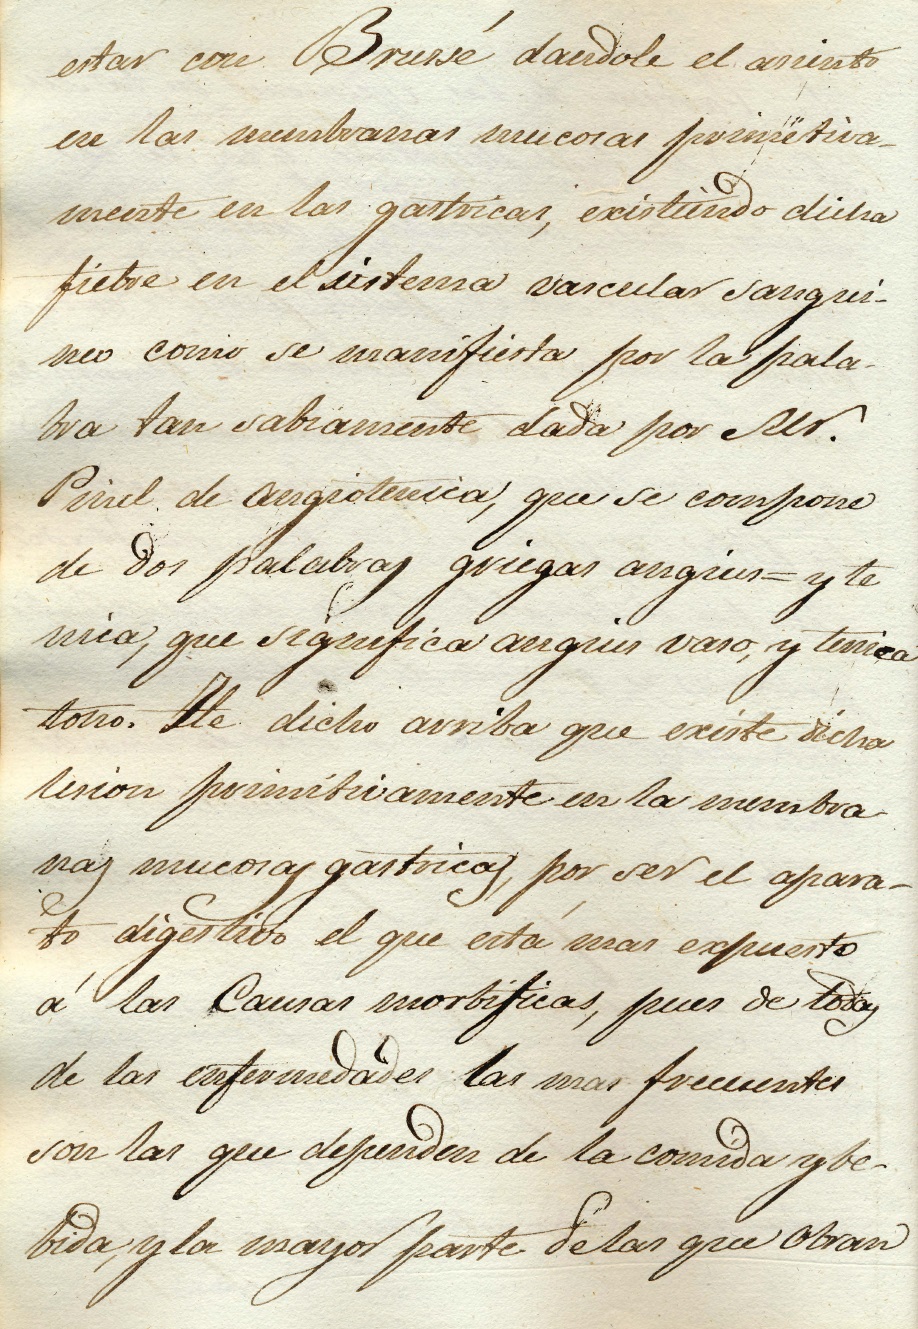 estar con Brussé dandole el asiento
en las membranas mucosas primitiva-
mente en las gastricas, existiendo dicha
fiebre en el sistema vascular sangui-
neo como se manifiesta por la pala-
bra tan sabiamente dada por Mr.
Pinel de angiotenica, que se compone
de dos palabras griegas angius= y te
nica, que significa angius vaso, y tenica
tono. He dicho arriba que existe dicha
lesion primitivamente en la membra
nas mucosas gastricas, por ser el apara-
to digestivo el que está mas expuesto
á las Causas morbificas, pues de todas
de las enfermedades las mas frecuentes
son las que dependen de la comida y be-
bida, y la mayor parte de las que obran